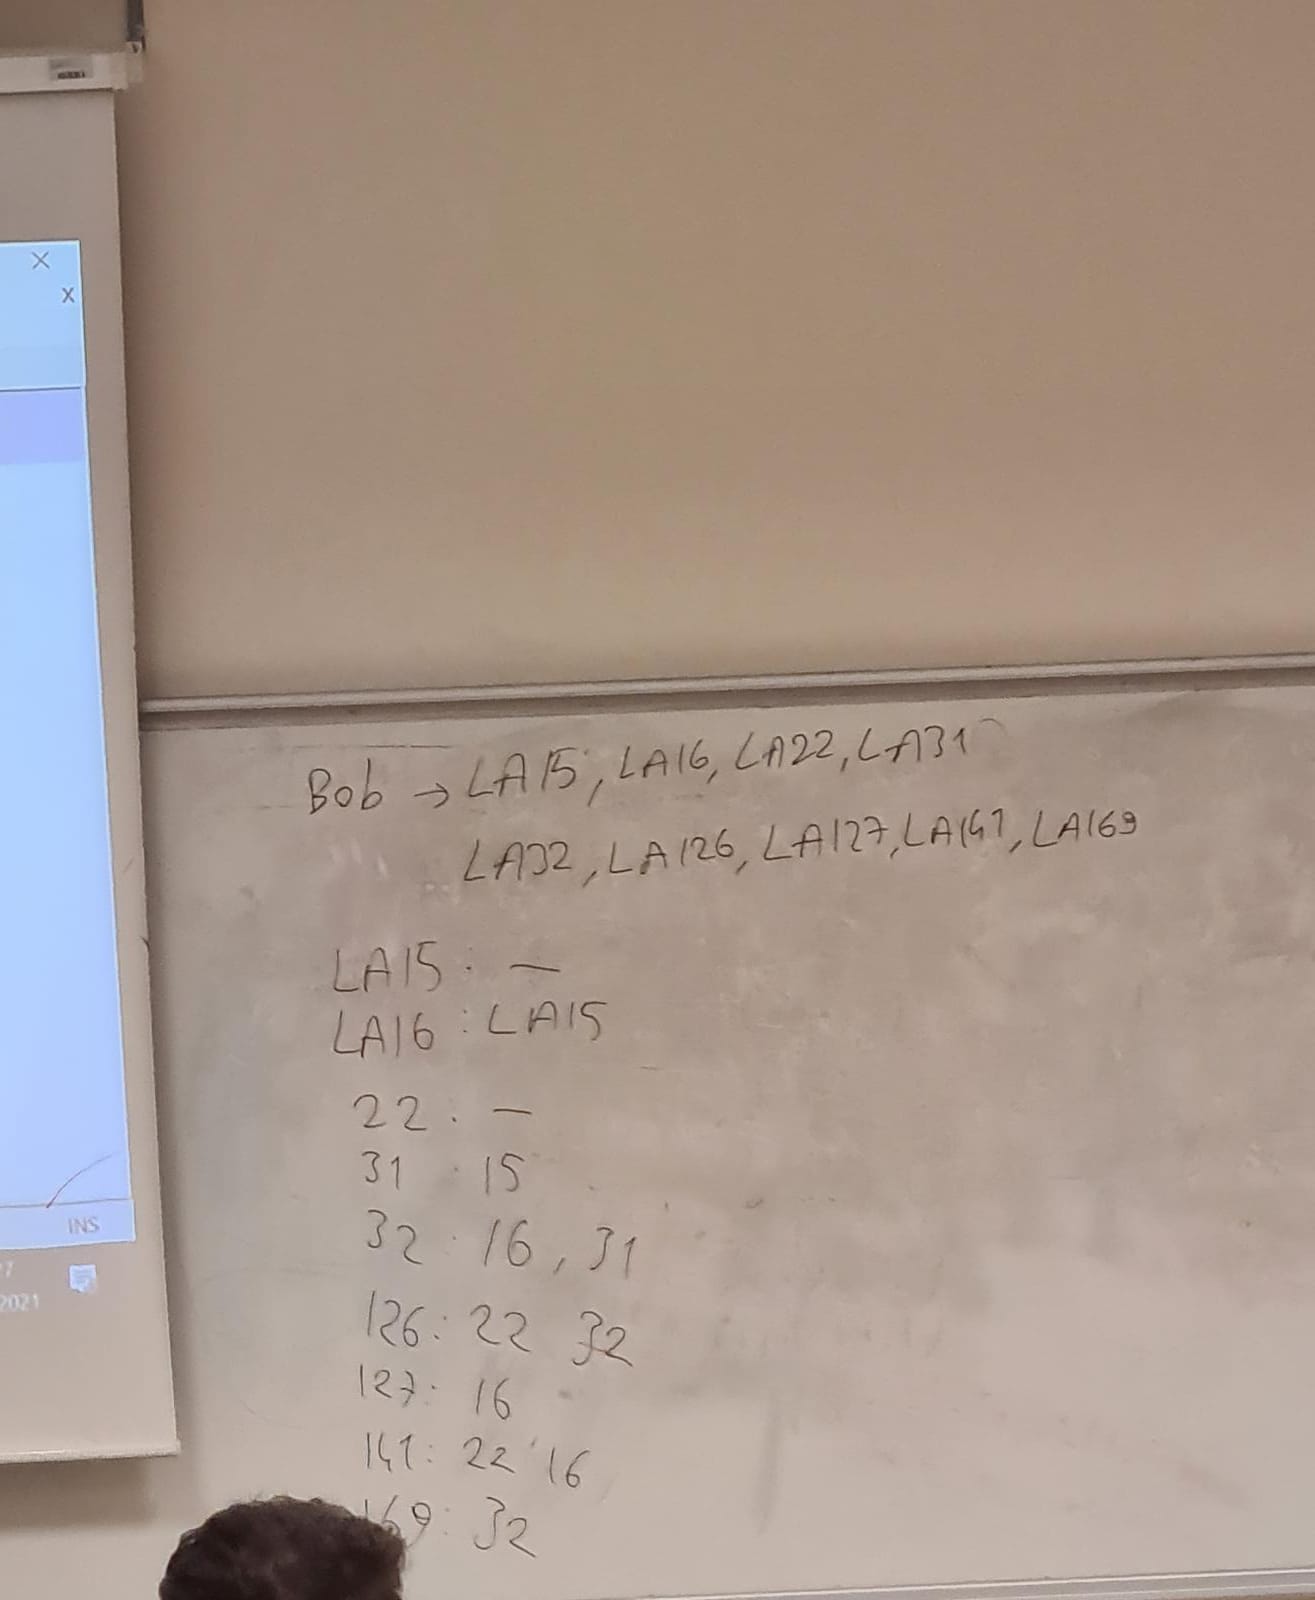 X
X
INS
2021
Bob → LA15, LA16, LA22, LA31
LA32, LA126, LA127, LA141, LA169
LA15: —
LA16: LA15
22: —
31: 15
32: 16, 31
126: 22 32
127: 16
141: 22 16
169: 32